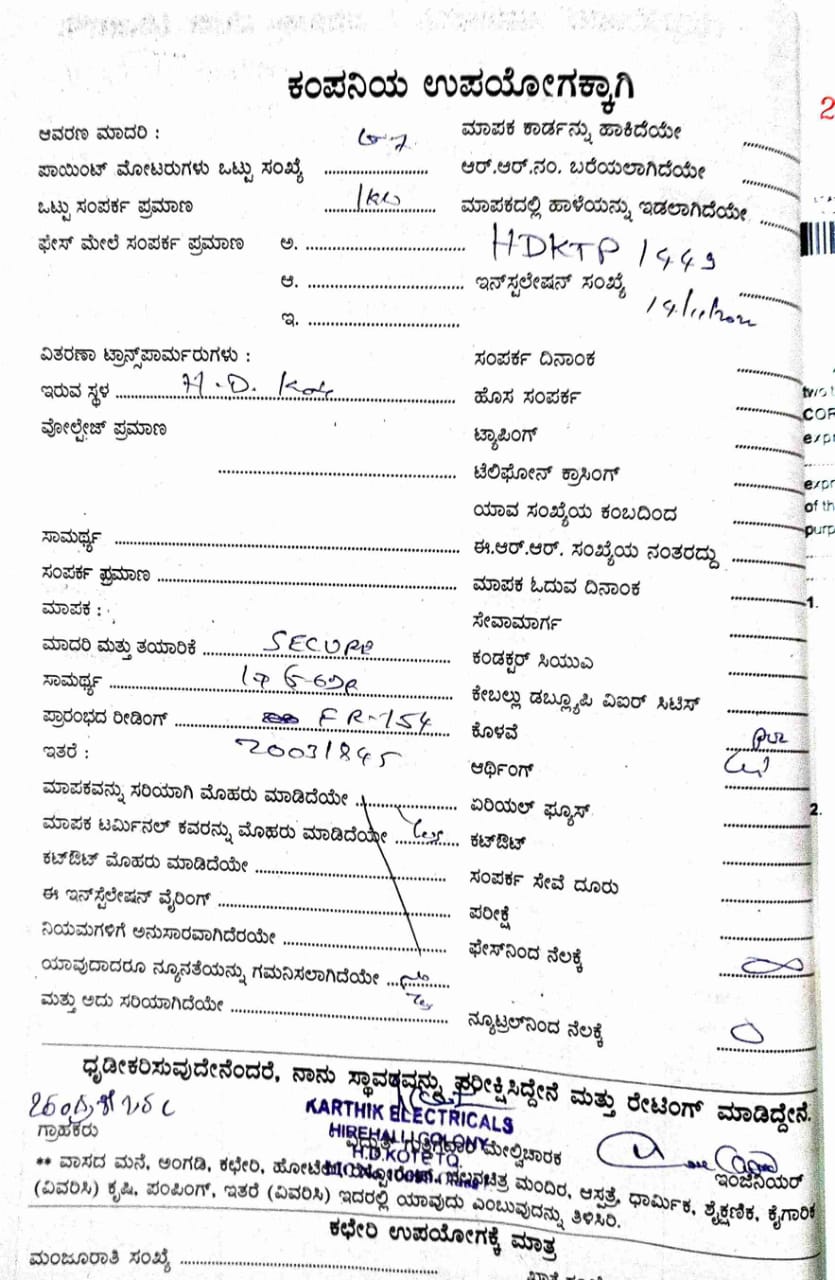 ಕಂಪನಿಯ ಉಪಯೋಗಕ್ಕಾಗಿ
2
ಆವರಣ ಮಾದರಿ : ಮಾಪಕ ಕಾರ್ಡನ್ನು ಹಾಕಿದೆಯೇ
ಪಾಯಿಂಟ್ ಮೋಟರುಗಳು ಒಟ್ಟು ಸಂಖ್ಯೆ ಆರ್.ಆರ್.ನಂ. ಬರೆಯಲಾಗಿದೆಯೇ
ಒಟ್ಟು ಸಂಪರ್ಕ ಪ್ರಮಾಣ 1kw ಮಾಪಕದಲ್ಲಿ ಹಾಳೆಯನ್ನು ಇಡಲಾಗಿದೆಯೇ
ಫೇಸ್ ಮೇಲೆ ಸಂಪರ್ಕ ಪ್ರಮಾಣ ಅ. HDKTP 1449
ಆ. ಇನ್‌ಸ್ಪಲೇಷನ್ ಸಂಖ್ಯೆ
ಇ.
ವಿತರಣಾ ಟ್ರಾನ್ಸ್‌ಪಾರ್ಮರುಗಳು : ಸಂಪರ್ಕ ದಿನಾಂಕ
ಇರುವ ಸ್ಥಳ H.D. Kote ಹೊಸ ಸಂಪರ್ಕ
ವೋಲ್ಟೇಜ್ ಪ್ರಮಾಣ ಟ್ಯಾಪಿಂಗ್
ಟೆಲಿಫೋನ್ ಕ್ರಾಸಿಂಗ್
ಯಾವ ಸಂಖ್ಯೆಯ ಕಂಬದಿಂದ
ಸಾಮರ್ಥ್ಯ ಈ.ಆರ್.ಆರ್. ಸಂಖ್ಯೆಯ ನಂತರದ್ದು
ಸಂಪರ್ಕ ಪ್ರಮಾಣ ಮಾಪಕ ಓದುವ ದಿನಾಂಕ
ಮಾಪಕ : ಸೇವಾಮಾರ್ಗ
ಮಾದರಿ ಮತ್ತು ತಯಾರಿಕೆ SECURE ಕಂಡಕ್ಟರ್ ಸಿಯುಎ
ಸಾಮರ್ಥ್ಯ ಕೇಬಲ್ಲು ಡಬ್ಲ್ಯೂಪಿ ವಿಐಆರ್ ಸಿಟಿಸ್
ಪ್ರಾರಂಭದ ರೀಡಿಂಗ್ FR-154 ಕೊಳವೆ
ಇತರೆ : 20031845 ಆರ್ಥಿಂಗ್
ಮಾಪಕವನ್ನು ಸರಿಯಾಗಿ ಮೊಹರು ಮಾಡಿದೆಯೇ ಏರಿಯಲ್ ಫ್ಯೂಸ್
ಮಾಪಕ ಟರ್ಮಿನಲ್ ಕವರನ್ನು ಮೊಹರು ಮಾಡಿದೆಯೇ Yes ಕಟ್‌ಔಟ್
ಕಟ್‌ಔಟ್ ಮೊಹರು ಮಾಡಿದೆಯೇ ಸಂಪರ್ಕ ಸೇವೆ ದೂರು
ಈ ಇನ್‌ಸ್ಟೆಲೇಷನ್ ವೈರಿಂಗ್ ಪರೀಕ್ಷೆ
ನಿಯಮಗಳಿಗೆ ಅನುಸಾರವಾಗಿದೆರಯೇ ಫೇಸ್‌ನಿಂದ ನೆಲಕ್ಕೆ
ಯಾವುದಾದರೂ ನ್ಯೂನತೆಯನ್ನು ಗಮನಿಸಲಾಗಿದೆಯೇ
ಮತ್ತು ಅದು ಸರಿಯಾಗಿದೆಯೇ ನ್ಯೂಟ್ರಲ್‌ನಿಂದ ನೆಲಕ್ಕೆ 0
ಧೃಡೀಕರಿಸುವುದೇನೆಂದರೆ, ನಾನು ಸ್ಥಾವರವನ್ನು ಪರೀಕ್ಷಿಸಿದ್ದೇನೆ ಮತ್ತು ರೇಟಿಂಗ್ ಮಾಡಿದ್ದೇನೆ.
KARTHIK ELECTRICALS
HIREHALLI COLONY
H.D.KOTE TQ.
ಗ್ರಾಹಕರು ಮೇಲ್ವಿಚಾರಕ ಇಂಜಿನಿಯರ್
** ವಾಸದ ಮನೆ, ಅಂಗಡಿ, ಕಛೇರಿ, ಚಲನಚಿತ್ರ ಮಂದಿರ, ಆಸ್ಪತ್ರೆ, ಧಾರ್ಮಿಕ, ಶೈಕ್ಷಣಿಕ, ಕೈಗಾರಿಕ
(ವಿವರಿಸಿ) ಕೃಷಿ, ಪಂಪಿಂಗ್, ಇತರೆ (ವಿವರಿಸಿ) ಇದರಲ್ಲಿ ಯಾವುದು ಎಂಬುವುದನ್ನು ತಿಳಿಸಿರಿ.
ಕಛೇರಿ ಉಪಯೋಗಕ್ಕೆ ಮಾತ್ರ
ಮಂಜೂರಾತಿ ಸಂಖ್ಯೆ